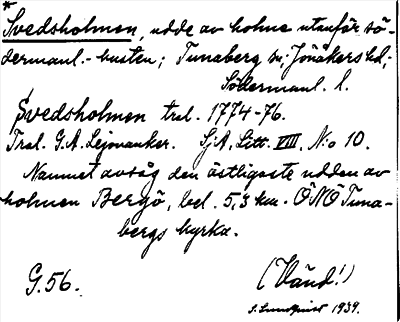 *
Svedsholmen, udde av holme utanför sö-
dermanl.-kusten; Tunaberg sn; Jönåkers hd;
Södermanl. l.
Svedsholmen trol. 1774-76.
Trol. G.A. Lejonanker. SjA, Litt. VIII, N:o 10.
Namnet avsåg den östligaste udden av
holmen Bergö, bel. 5,3 km. ÖNÖ Tuna-
bergs kyrka.
G.56.
(Vänd!)
S. Lundqvist 1939.